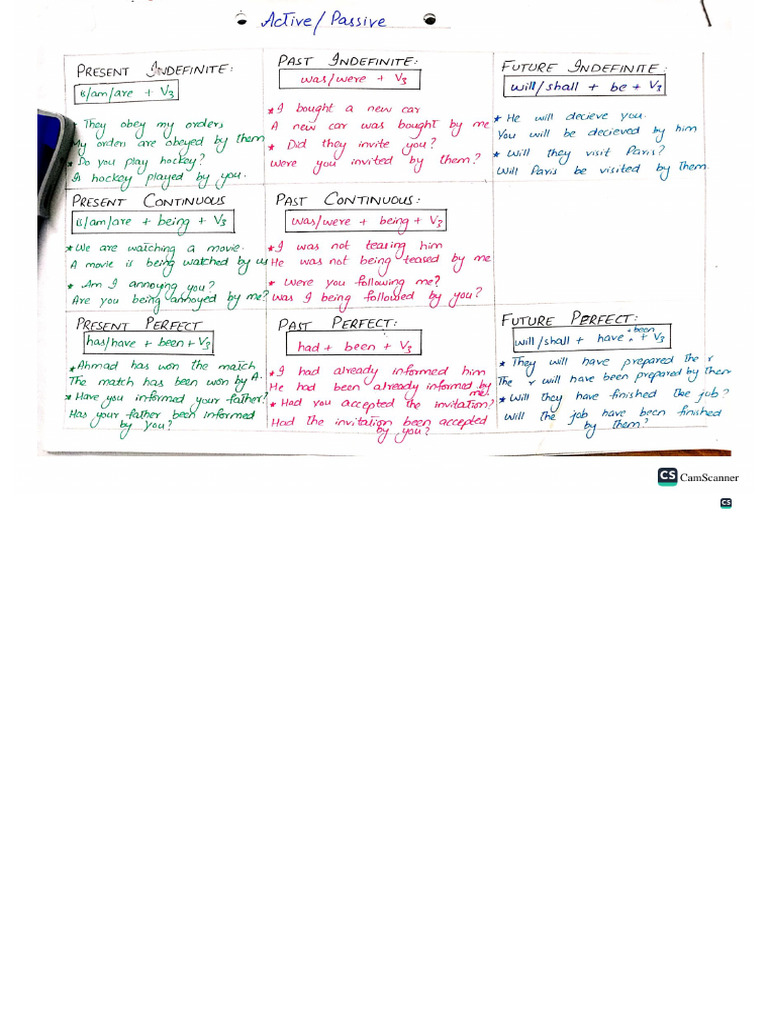 Active/Passive
PRESENT INDEFINITE:
is/am/are + V3
They obey my orders
My order are obeyed by them
* Do you play hockey?
Is hockey played by you.
PAST INDEFINITE:
was/were + V3
* I bought a new car
A new car was bought by me
* Did they invite you?
Were you invited by them?
FUTURE INDEFINITE:
will/shall + be + V3
* He will decieve you.
You will be decieved by him
* Will they visit Paris?
Will Paris be visited by them.
PRESENT CONTINUOUS
is/am/are + being + V3
* We are watching a movie.
A movie is being watched by us
* Am I annoying you?
Are you being annoyed by me?
PAST CONTINUOUS:
was/were + being + V3
* I was not teasing him
He was not being teased by me
* Were you following me?
Was I being followed by you?
PRESENT PERFECT
has/have + been + V3
* Ahmad has won the match
The match has been won by A.
* Have you informed your father?
Has your father been informed
by you?
PAST PERFECT:
had + been + V3
* I had already informed him
He had been already informed by
me.
* Had you accepted the invitation?
Had the invitation been accepted
by you?
FUTURE PERFECT:
will/shall + have + been + V3
* They will have prepared the r
The r will have been prepared by them
* Will they have finished the job?
Will the job have been finished
by them?
CS CamScanner
CS